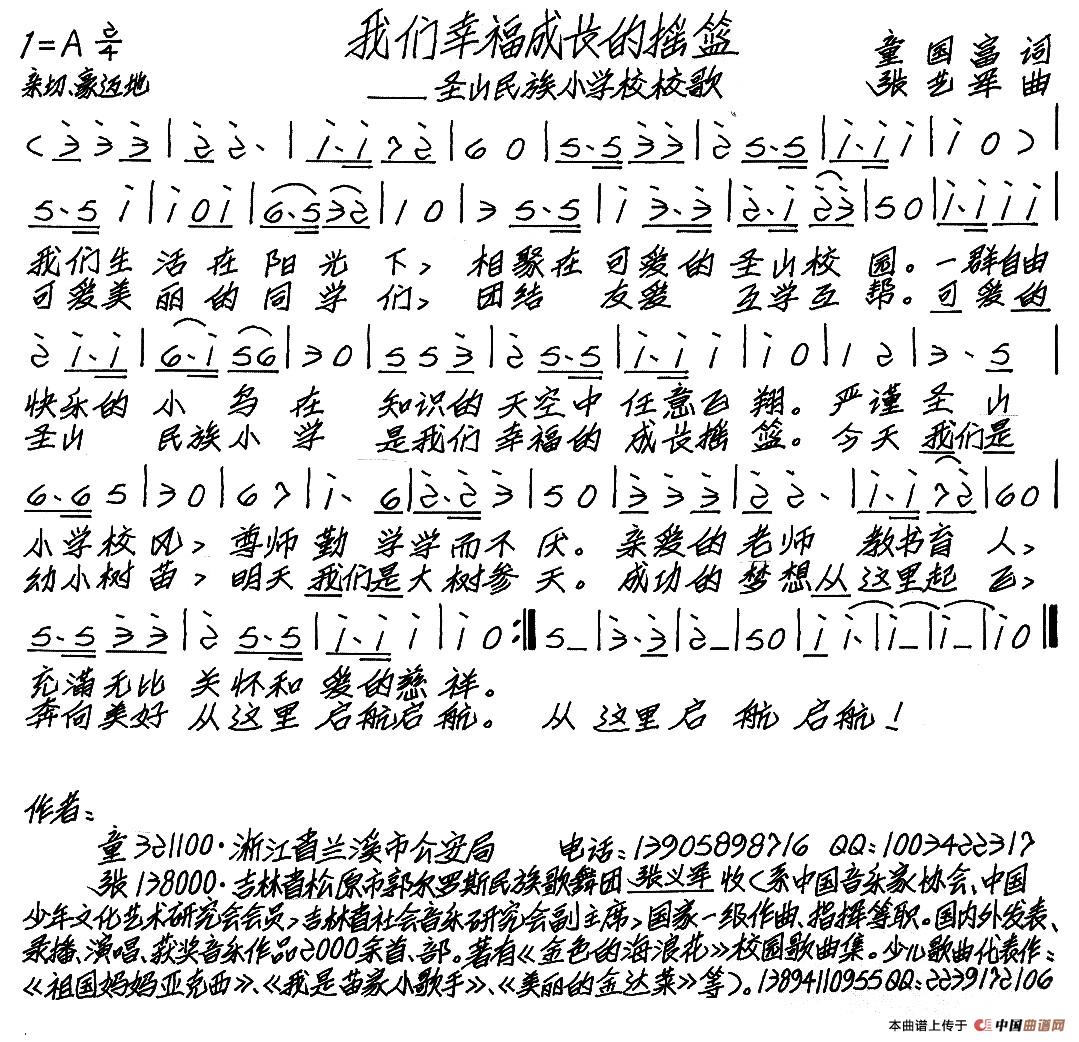 我们幸福成长的摇篮
1=A 2/4
童国富 词
亲切、豪迈地
——圣山民族小学校校歌
张艺军 曲
我们生活在阳光下，相聚在可爱的圣山校园。一群自由
可爱美丽的同学们，团结友爱互学互帮。可爱的
快乐的小鸟在知识的天空中任意飞翔。严谨圣山
圣山民族小学是我们幸福的成长摇篮。今天我们是
小学校风，尊师勤学学而不厌。亲爱的老师教书育人，
幼小树苗，明天我们是大树参天。成功的梦想从这里起飞，
充满无比关怀和爱的慈祥。
奔向美好从这里启航启航。从这里启航启航！
作者：
童 321100·浙江省兰溪市公安局 电话：13905898716 QQ：1003422317
张 138000·吉林省松原市郭尔罗斯民族歌舞团 张义军 收（系中国音乐家协会、中国
少年文化艺术研究会会员，吉林省社会音乐研究会副主席，国家一级作曲、指挥等职。国内外发表、
录播、演唱、获奖音乐作品2000余首、部。著有《金色的海浪花》校园歌曲集。少儿歌曲代表作：
《祖国妈妈亚克西》、《我是苗家小歌手》、《美丽的金达莱》等）。13894110955 QQ：2239172106
本曲谱上传于 中国曲谱网